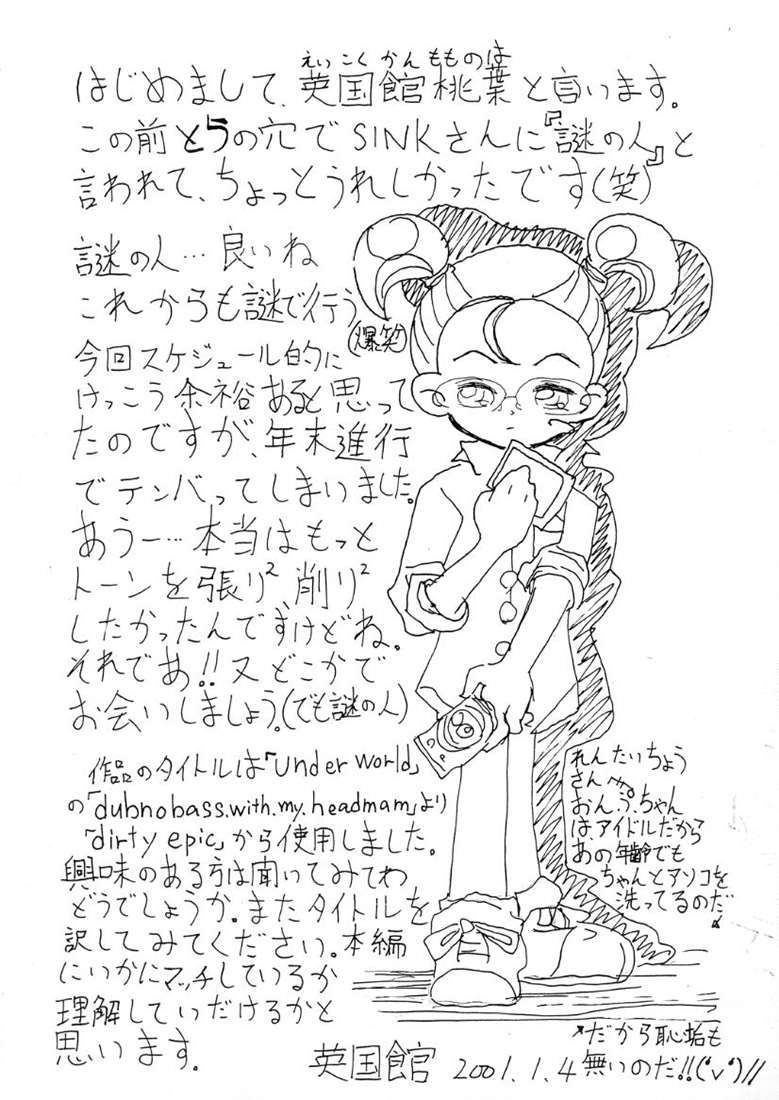 えいこくかんもものは
はじめまして、英国館桃葉と言います。
この前とらの穴でSINKさんに『謎の人』と
言われて、ちょっとうれしかったです(笑)
謎の人…良いね
これからも謎で行う
(爆笑)
今回スケジュール的に
けっこう余裕あると思って
たのですが、年末進行
でテンパってしまいました。
あうー…本当はもっと
トーンを張り²、削り²
したかったんですけどね。
それであ!!又どこかで
お会いしましょう。(でも謎の人)
作品のタイトルは「Under world」
の「dubnobass.with.my.headmam」より
「dirty epic」から使用しました。
興味のある方は聞いてみてわ
どうでしょうか。またタイトルを
訳してみてください。本編
にいかにマッチしているか
理解していだけるかと
思います。
英国館 2001.1.4